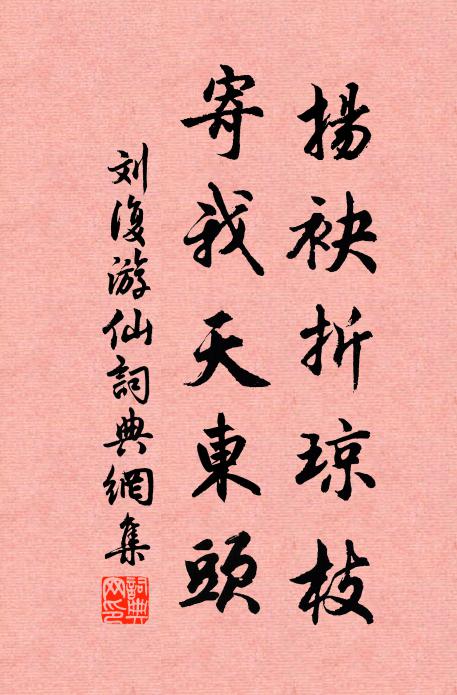 揚袂折琼枝
寄我天東頭
刘復游仙詞典網集
詞典網印